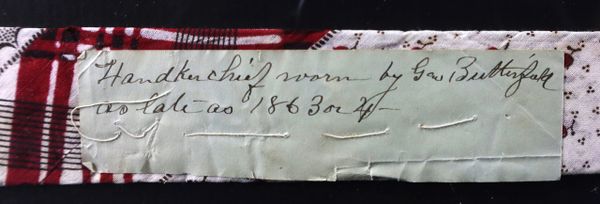 Handkerchief worn by Geo Butterfield
as late as 1863 or 4-